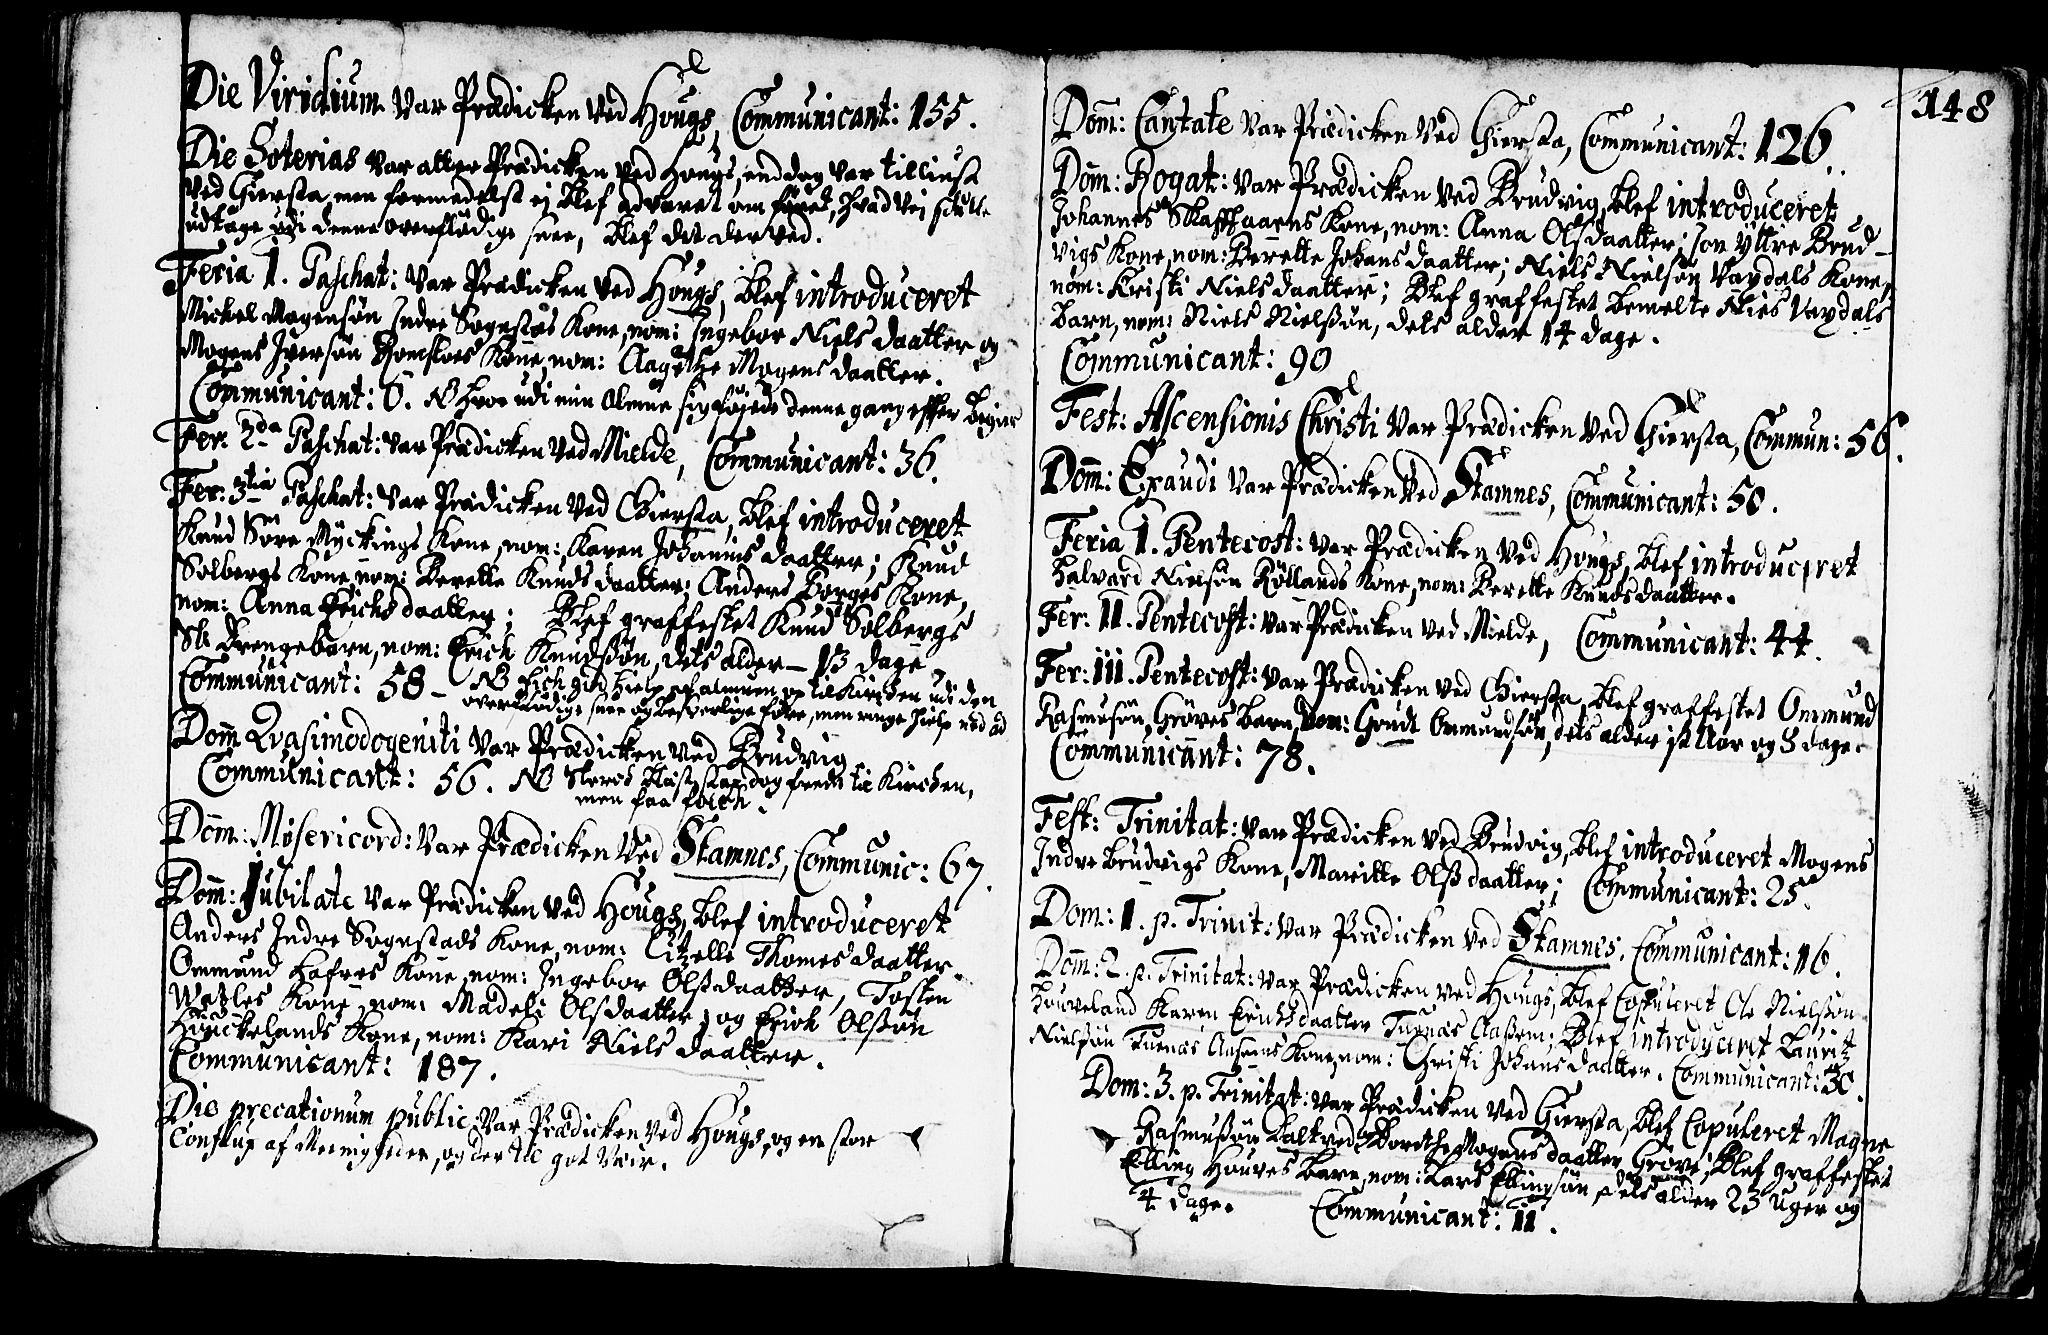 Die Viridium var Prædicken ved Hougs, Communicant: 155.
Die Soterias var atter Prædicken ved Hougs, end dog var tilliust
ved Giersta, men formedelst ej blef advaret om føret, hvad vej skulle
udtage udi denne overflødige snee, blef det derved.
Feria 1. Paschat: var Prædicken ved Hougs, blef introduceret
Mickel Mogensøn Indre Sognstøs Kone, nom: Ingebor Niels daatter og
Mogens Iversøn Romsloes Kone, nom: Aagothe Mogens daatter.
Communicant: 6. NB hvor udi min Almue sig føjede denne gang effter begier
Fer: 2da Paschat: var Prædicken ved Mielde, Communicant: 36.
Fer: 3tia Paschat: var Prædicken ved Giersta, blef introduceret
Knud Søre Myckings Kone, nom: Karen Johannis daatter; Knud
Solbergs Kone, nom: Berette Knuds daatter; Anders Borges Kone,
nom: Anna Erichs daatter; Blef graffestet Knud Solbergs
Sl: drengebarn, nom: Erich Knudssøn, dets alder - 13 dage
Communicant: 58 - NB fich gud hielp af almuen op til Kircken udi den
overflødige snee og besverlige føre, men ringe hielp ned ad
Dom̄ Qvasimodogeniti var Prædicken ved Brudvig
Communicant: 56. NB sterch blæst stax dog frem til Kircken,
men faa folch.
Dom̄: Misericord: var Prædicken ved Stamnes, Communic: 67.
Dom̄: Jubilate var Prædicken ved Hougs, blef introduceret
Anders Indre Sognstads Kone, nom: Citzelle Thomes daatter.
Ommund Hafres Kone, nom: Ingebor Olssdaatter, Tosten
Watles Kone, nom: Madeli Olsdaatter, og Erich Olssøn
Houckelands Kone, nom: Kari Niels daatter.
Communicant: 187.
Die precationum public: var Prædicken ved Hougs, og en stor
Conflux af Meenigheden, og der til got veir.
148
Dom̄: Cantate var Prædicken ved Giersta, Communicant: 126.
Dom̄: Rogat: var Prædicken ved Brudvig, blef introduceret
Johannes Skafthaarns Kone, nom: Anna Olsdaatter; Jon Yttre Brud-
vigs Kone, nom: Berette Johansdaatter; Niels Nielsøn Vaxdals Kone,
nom: Kristi Niels daatter; Blef graffestet bemelte Niels Vaxdals
barn, nom: Niels Nielssøn, dets alder 14 dage.
Communicant: 90
Fest: Ascensionis Christi var Prædicken ved Giersta, Commun: 56.
Dom̄: Exaudi var Prædicken ved Stamnes, Communicant: 50.
Feria 1. Pentecost: var Prædicken ved Hougs, blef introduceret
Halvard Nielsøn Røllands Kone, nom: Berette Knudsdaatter.
Fer: II. Pentecost: var Prædicken ved Mielde, Communicant: 44.
Fer: III. Pentecost: var Prædicken ved Giersta, blef graffestet Ommund
Rasmusøn Gröves barn, nom: Grudt Ommundsøn, dets alder 1½ Aar og 8 dage.
Communicant: 78.
Fest: Trinitat: var Prædicken ved Brudvig, blef introduceret Mogens
Indre Brudvigs Kone, Maritte Olss daatter; Communicant: 25.
Dom: 1. p. Trinit: var Prædicken ved Stamnes, Communicant: 16.
Dom̄: 2. p. Trinitat: var Prædicken ved Hougs, blef Copuleret Ole Nielssøn
Houveland Karen Erichsdaatter Tuenæs Aassem; Blef introduceret Lauritz
Nielssøn Tuenæs Aassems Kone, nom: Christi Johans daatter. Communicant: 30.
Dom: 3. p. Trinitat: var Prædicken ved Giersta, blef Copuleret Magne
Rasmussøn Dalt ved Dorethe Mogens daatter Gröve; Blef graffestet
Elling Houves barn, nom: Lars Ellingsøn, dets alder 23 uger og
4 dage. Communicant: 11.